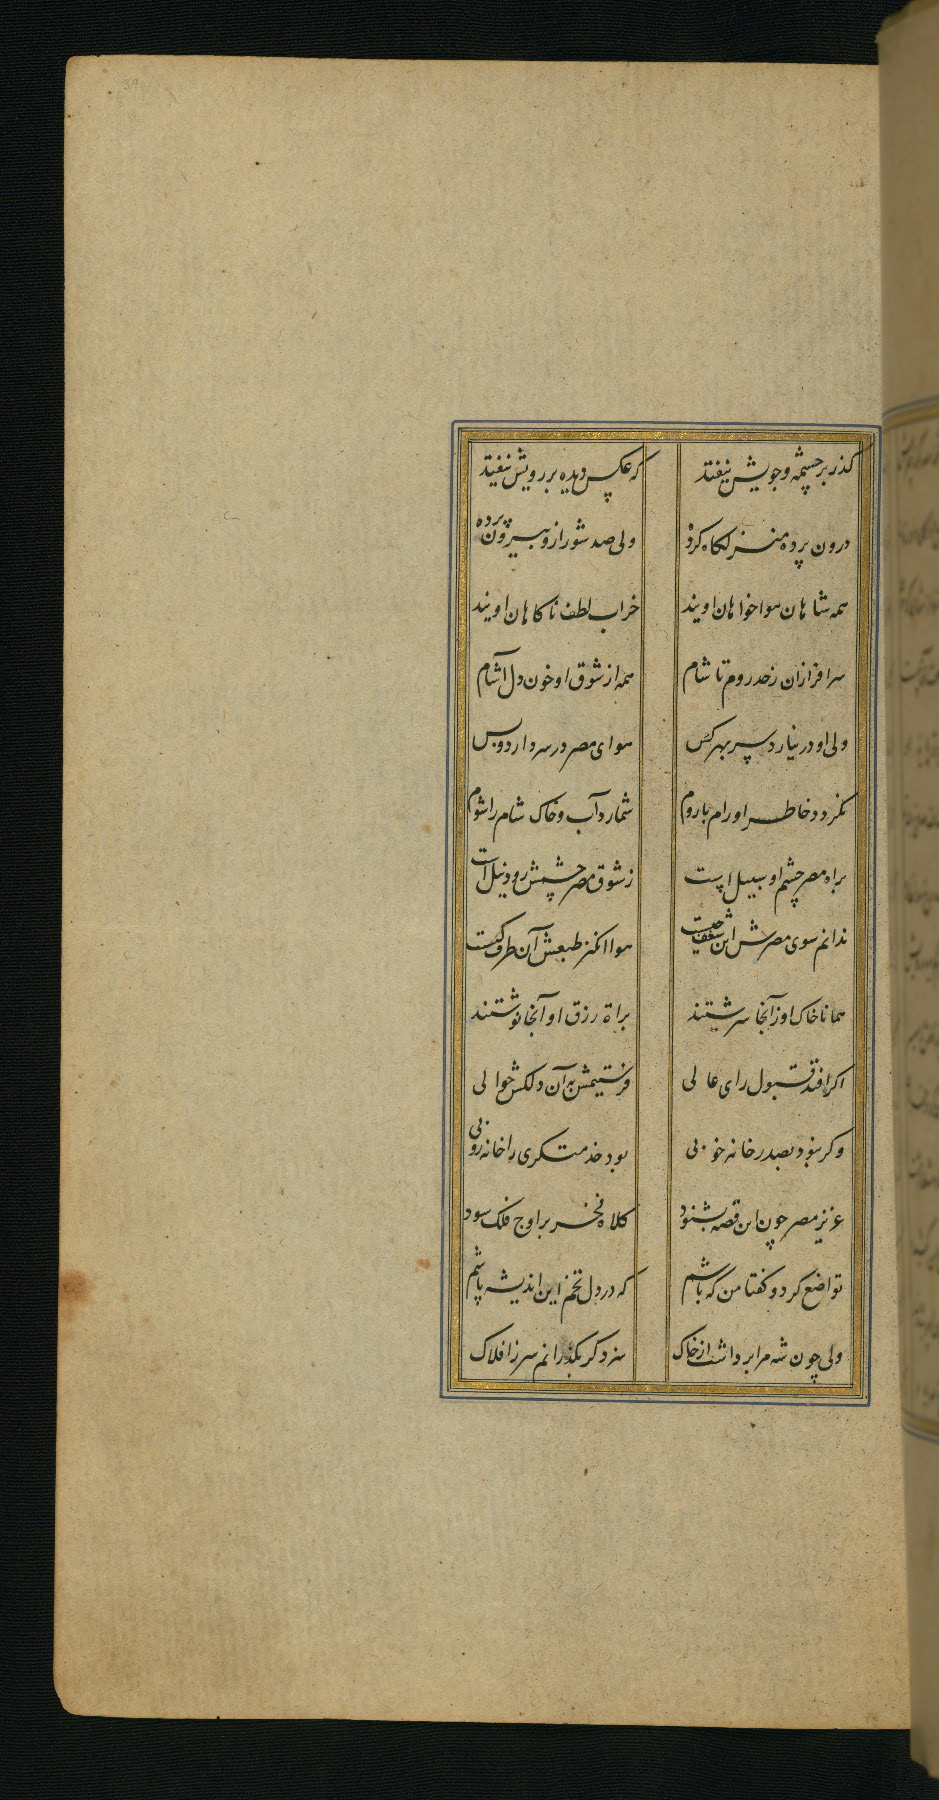 گذر بر چشمه و جویش نیفتد که عکس دیده بر رویش نیفتد
درون پرده منزلگاه کرده ولی صد شور ازو بیرون پرده
همه شاهان هواخواهان اویند خراب لطف ناگاهان اویند
سرافرازان ز حد روم تا شام همه از شوق او خون دل آشام
ولی او در نیارد سر بهر کس هوای مصر در سر دارد و بس
نگردد خاطر او رام با روم شمارد آب و خاک شام را شوم
براه مصر چشم او سبیل است ز شوق مصر چشمش رود نیل است
ندانم سوی مصرش این شعف چیست هوا انگیز طبعش آن طرف کیست
همانا خاک او ز آنجا سرشتند براة رزق او آنجا نوشتند
اگر افتد قبول رای عالی فرستیمش به آن دلکش حوالی
وگر نبود بصدر خانه خوبی بود خدمتگری را خانه روبی
عزیز مصر چون این قصه بشنود کلاه فخر بر اوج فلک سود
تواضع کرد و گفتا من که باشم که در دل تخم این اندیشه پاشم
ولی چون شه مرا برداشت از خاک سزد گر بگذرانم سر ز افلاک